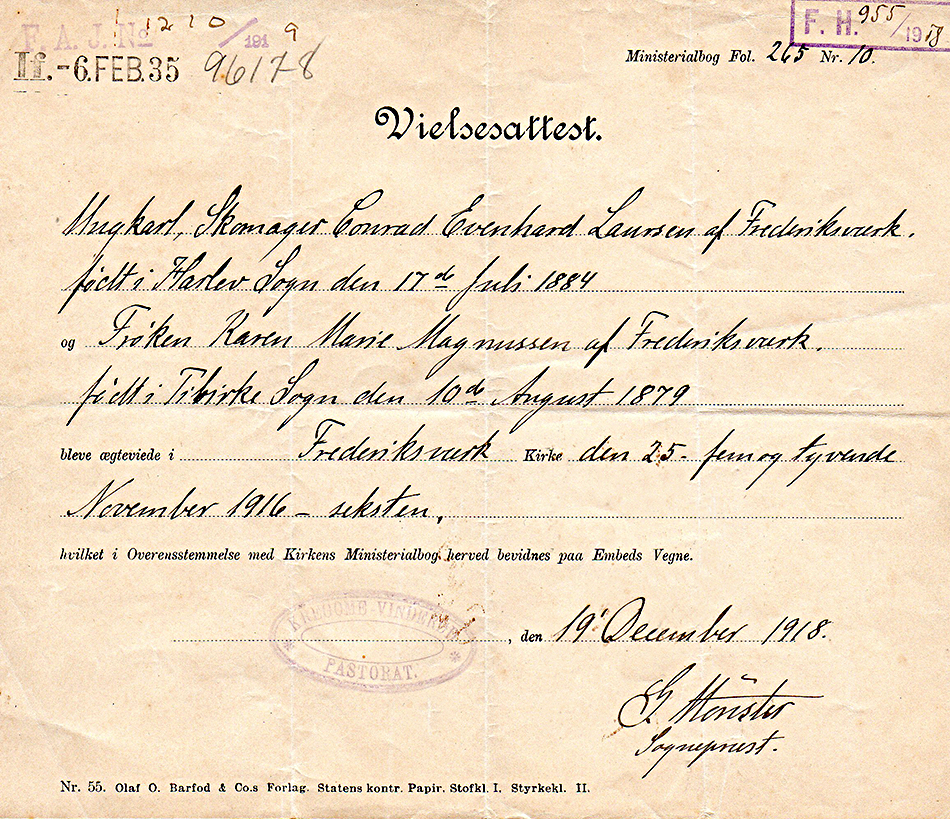 F. A. J. No 1210 / 1919
F. H. 955 / 1918
If. -6.FEB.35 96178
Ministerialbog Fol. 265 Nr. 10.
Vielsesattest.
Ungkarl, Skomager Conrad Evenhard Laursen af Frederiksværk.
født i Harlev Sogn den 17de Juli 1884
og Frøken Karen Marie Magnussen af Frederiksværk.
født i Tibirke Sogn den 10de August 1879
bleve ægteviede i Frederiksværk Kirke den 25- fem og tyvende
November 1916 - seksten,
hvilket i Overensstemmelse med Kirkens Ministerialbog herved bevidnes paa Embeds Vegne.
KREGOME-VINDERØD
PASTORAT.
, den 19' December 1918.
G. Mönster
Sognepræst.
Nr. 55. Olaf O. Barfod & Co.s Forlag. Statens kontr. Papir. Stofkl. I. Styrkekl. II.